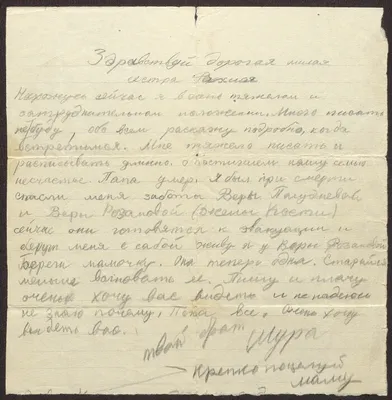 Здравствуй дорогая милая
сестра
Нахожусь сейчас я в очень тяжелом и
затруднительном положении. Много писать
не буду, обо всем расскажу подробно, когда
встретимся. Мне тяжело писать и
расписывать о постигшем нашу семью
несчастье Папа умер. Я был при смерти
спасли меня заботы Веры
и Веры Розановой (жены Кости)
сейчас они готовятся к эвакуации и
берут меня с собой живу я у Веры Розановой
Береги мамочку. Она теперь одна. Старайся
меньше волновать ее. Пишу и плачу
очень хочу вас видеть и не надеюсь
не знаю почему. Пока все. Очень хочу
видеть вас.
твой брат Шура
крепко поцелуй
маму